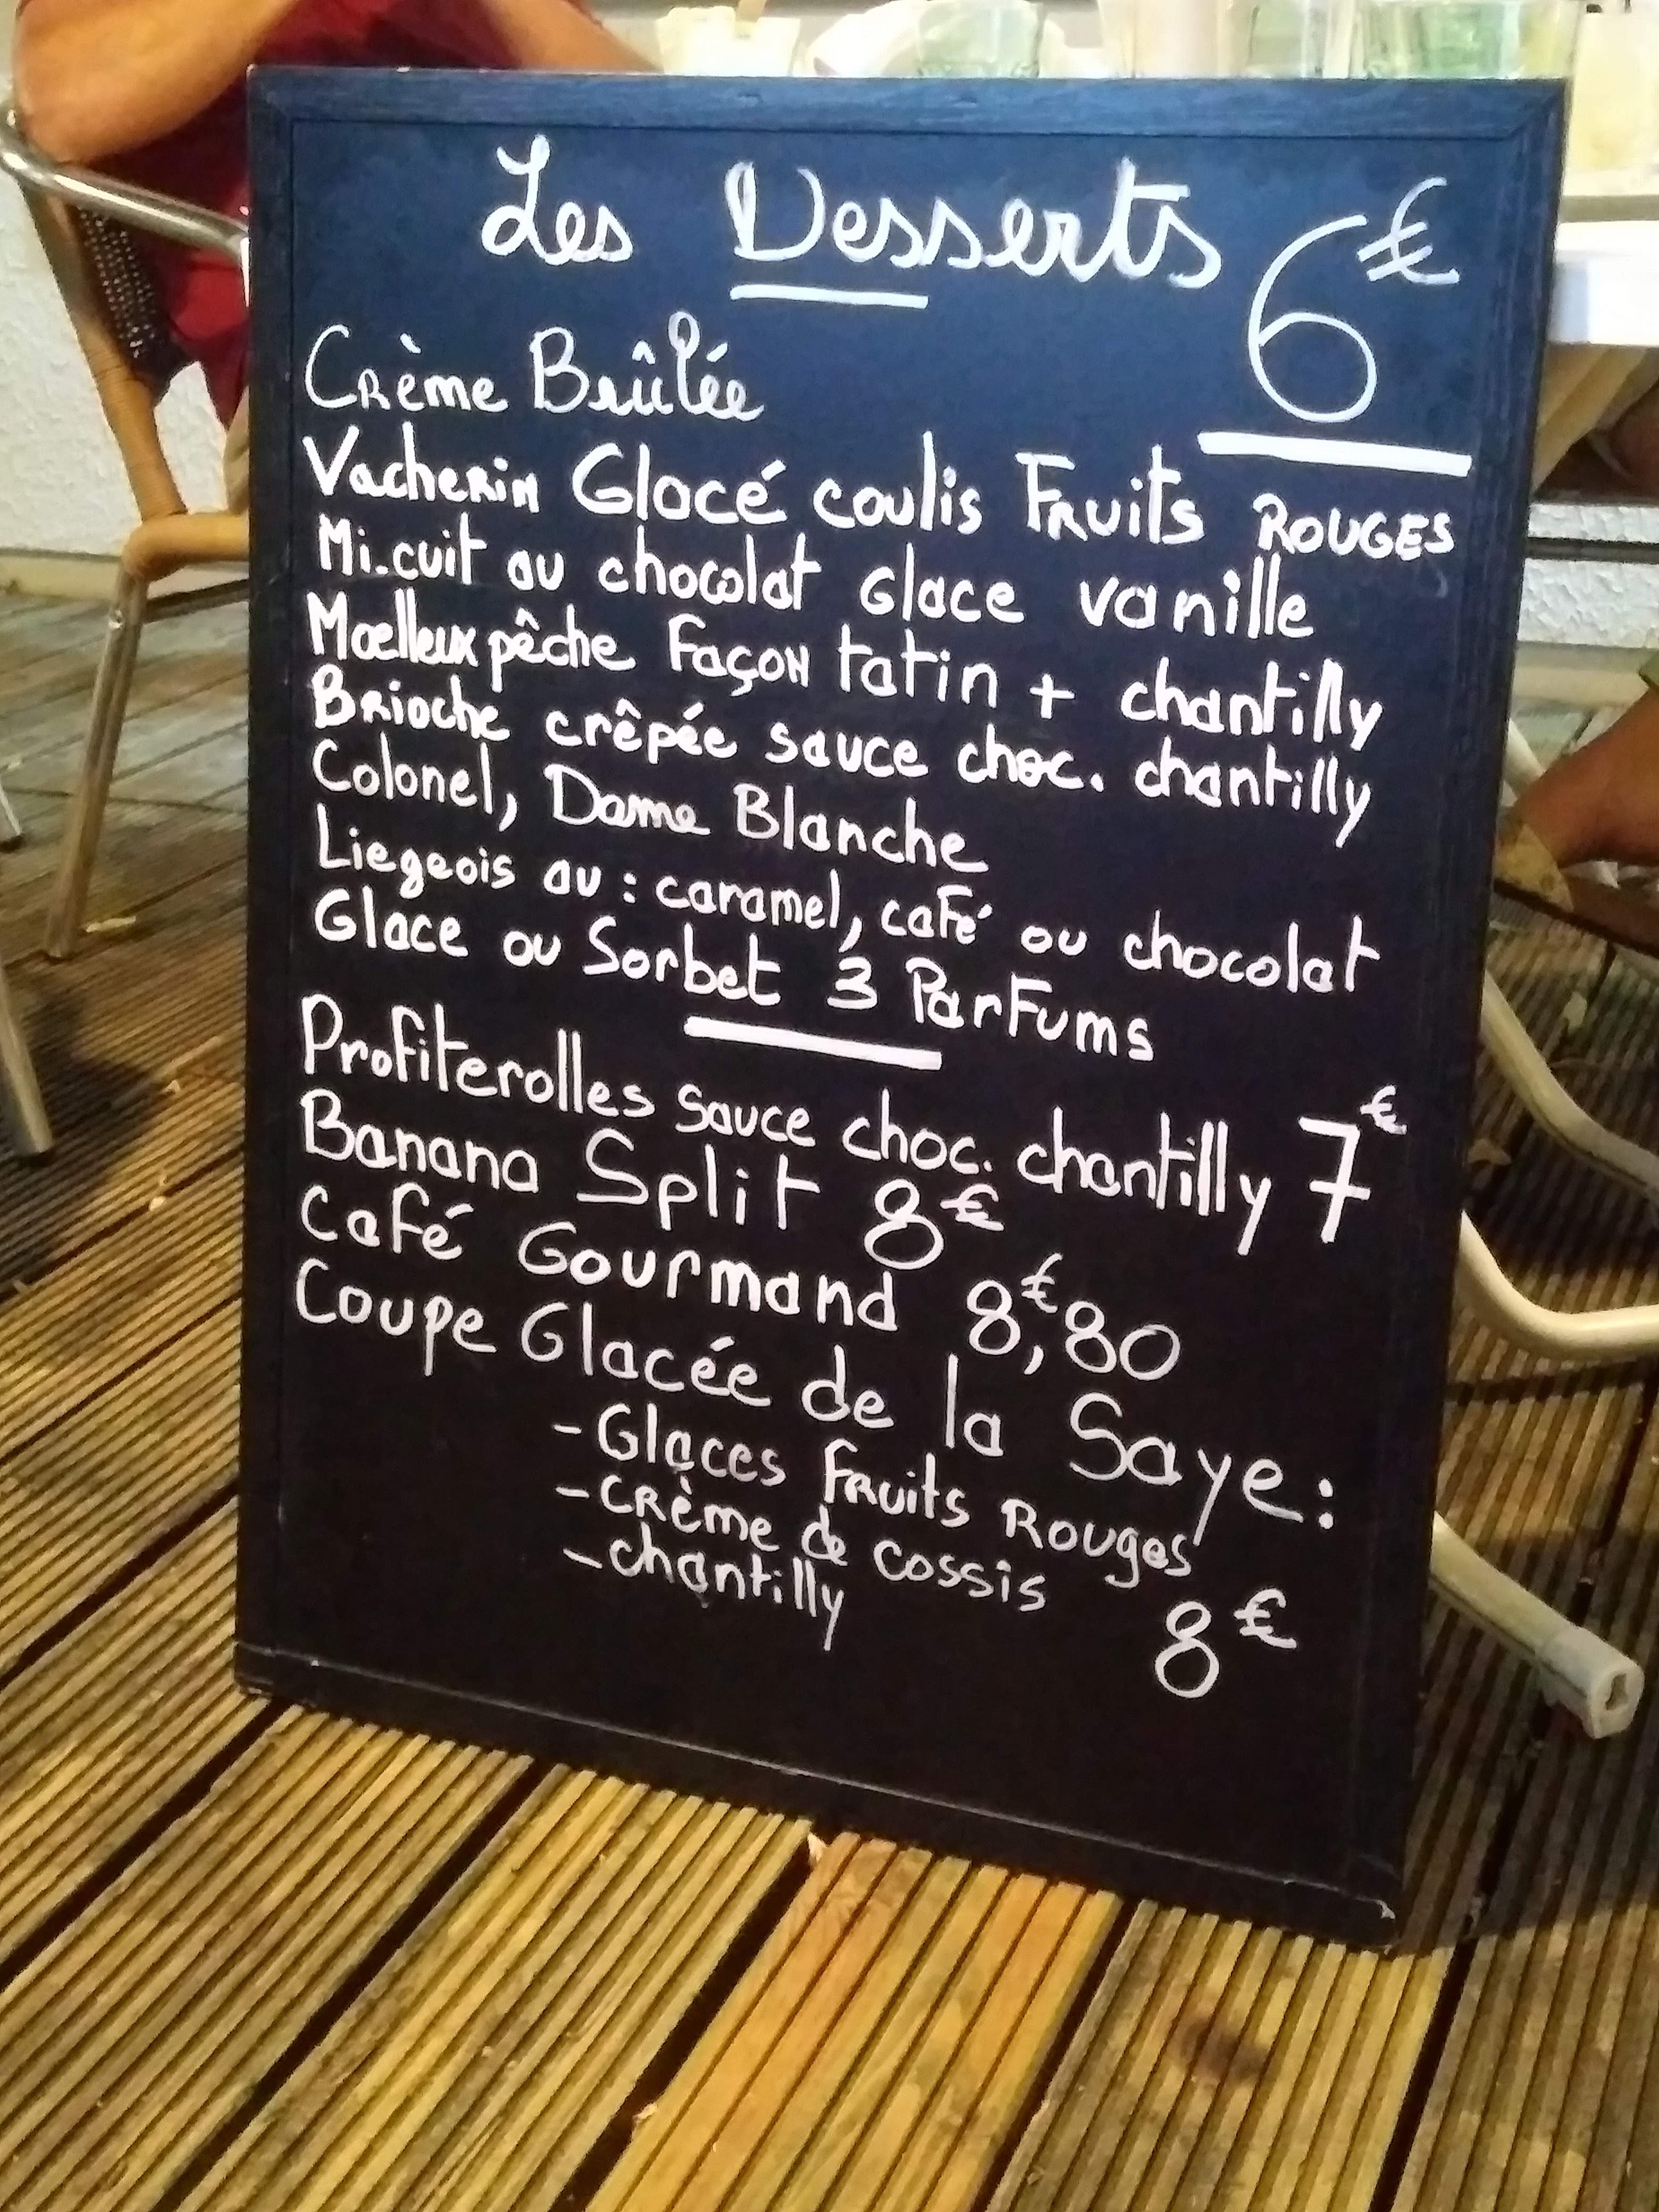 Les Desserts 6€
Crème Brûlée
Vacherin Glacé coulis Fruits ROUGES
Mi-cuit au chocolat Glace vanille
Mœlleux pêche Façon tatin + chantilly
Brioche crêpée sauce choc. chantilly
Colonel, Dame Blanche
Liegeois au : caramel, café ou chocolat
Glace ou Sorbet 3 ParFums
Profiterolles sauce choc. chantilly 7€
Banana Split 8€
Café Gourmand 8€,80
Coupe Glacée de la Saye :
- Glaces Fruits Rouges
- Crème de cassis
- chantilly 8€